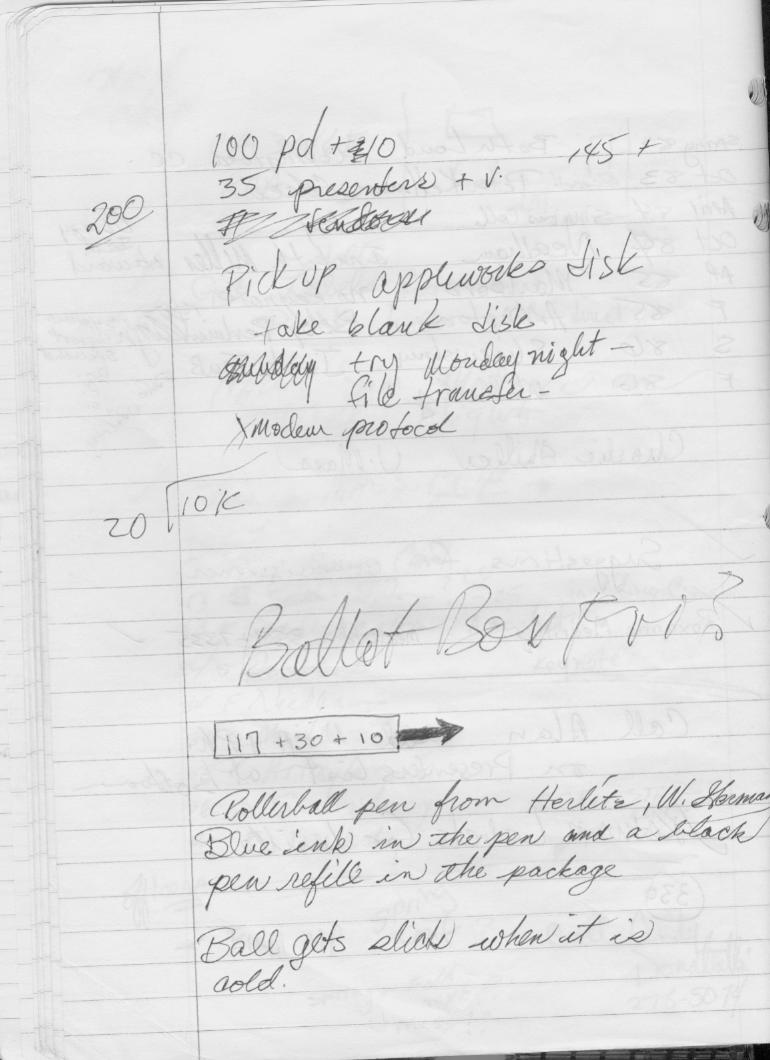 100 pd + 10
,45 +
35 presenters + v.
200
Pick up appleworks disk
take blank disk
try Monday night -
file transfer -
Xmodem protocol
20 10K
Ballot Box Fri?
117 + 30 + 10
Rollerball pen from Herlitz, W. German
Blue ink in the pen and a black
pen refill in the package
Ball gets slick when it is
cold.